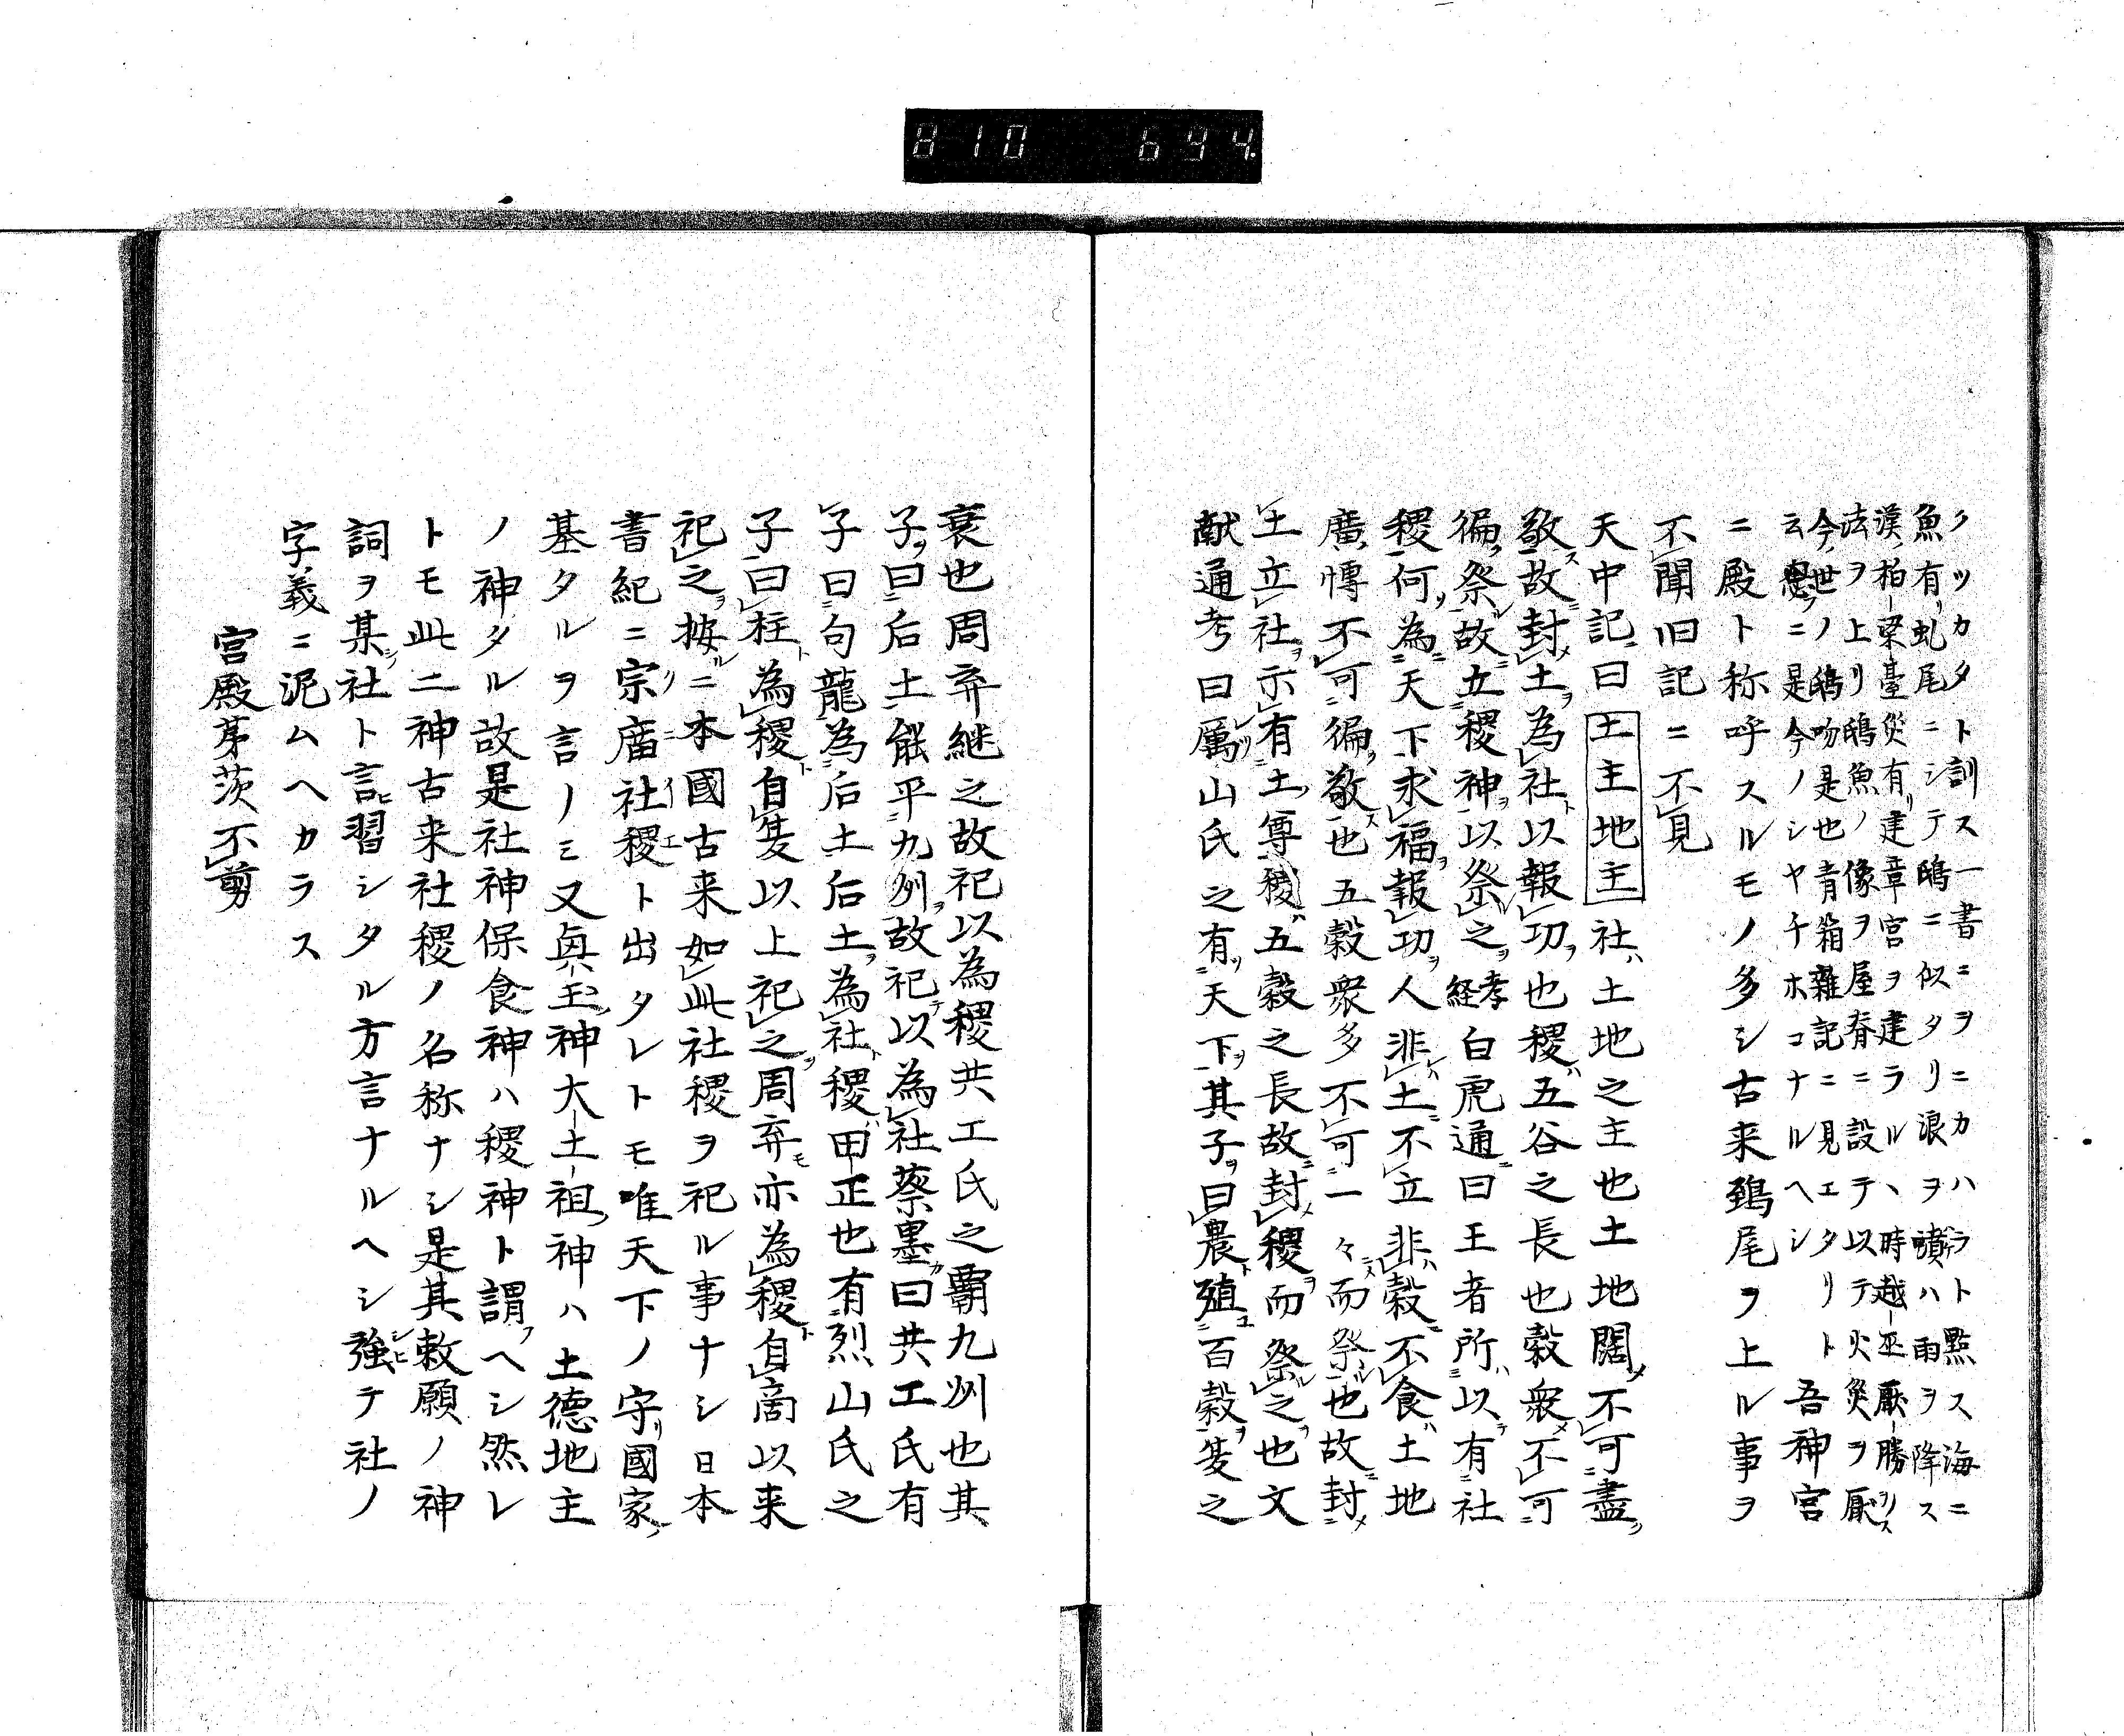 810 694.
クツカタト訓ス一書ニヲニカハラト點ス海ニ
魚有虬尾ニシテ鴟ニ似タリ浪ヲ噴ハ雨ヲ降ス
漢ノ栢梁臺災有リ建章宮ヲ建ラル丶時越巫厭勝
法ヲ上リ鴟魚ノ像ヲ屋脊ニ設テ以テ火災ヲ厭
今ノ世ノ鴟吻是也青箱雜記ニ見エタリト吾神宮
云ニ是今ノシヤチホコナルヘシ
ニ殿ト称呼スルモノ多シ古来鵄尾ヲ上ル事ヲ
不聞旧記ニ不見
天中記曰土主地主社ハ土地之主也土地闊不可盡
敬故封土為社以報功也稷五谷之長也穀衆不可
徧祭故立稷神以祭之孝経白虎通曰王者所以有社
稷何為天下求福報功人非土不立非穀不食土地
廣慱不可徧敬也五穀衆多不可一々而祭也故封
土立社示有土尊稷五穀之長故封稷而祭之也文
献通考曰厲山氏之有天下其子曰農殖百穀夏之
衰也周弃継之故祀以為稷共工氏之覇九州也其
子曰后土能平九州故祀以為社蔡墨曰共工氏有
子曰句龍為后土后土為社稷田正也有烈山氏之
子曰柱為稷自夏以上祀之周弃亦為稷自商以来
祀之按ルニ本國古来如此社稷ヲ祀ル事ナシ日本
書紀ニ宗廟社稷ト出タレトモ唯天下ノ守國家ノ
基タルヲ言ノミ又興玉神大土祖神ハ土德地主
ノ神タル故是社神保食神ハ稷神ト謂ヘシ然レ
トモ此二神古来社稷ノ名称ナシ是其敕願ノ神
詞ヲ某社ト言習シタル方言ナルヘシ強テ社ノ
字義ニ泥ムヘカラス
宮殿茅茨不剪